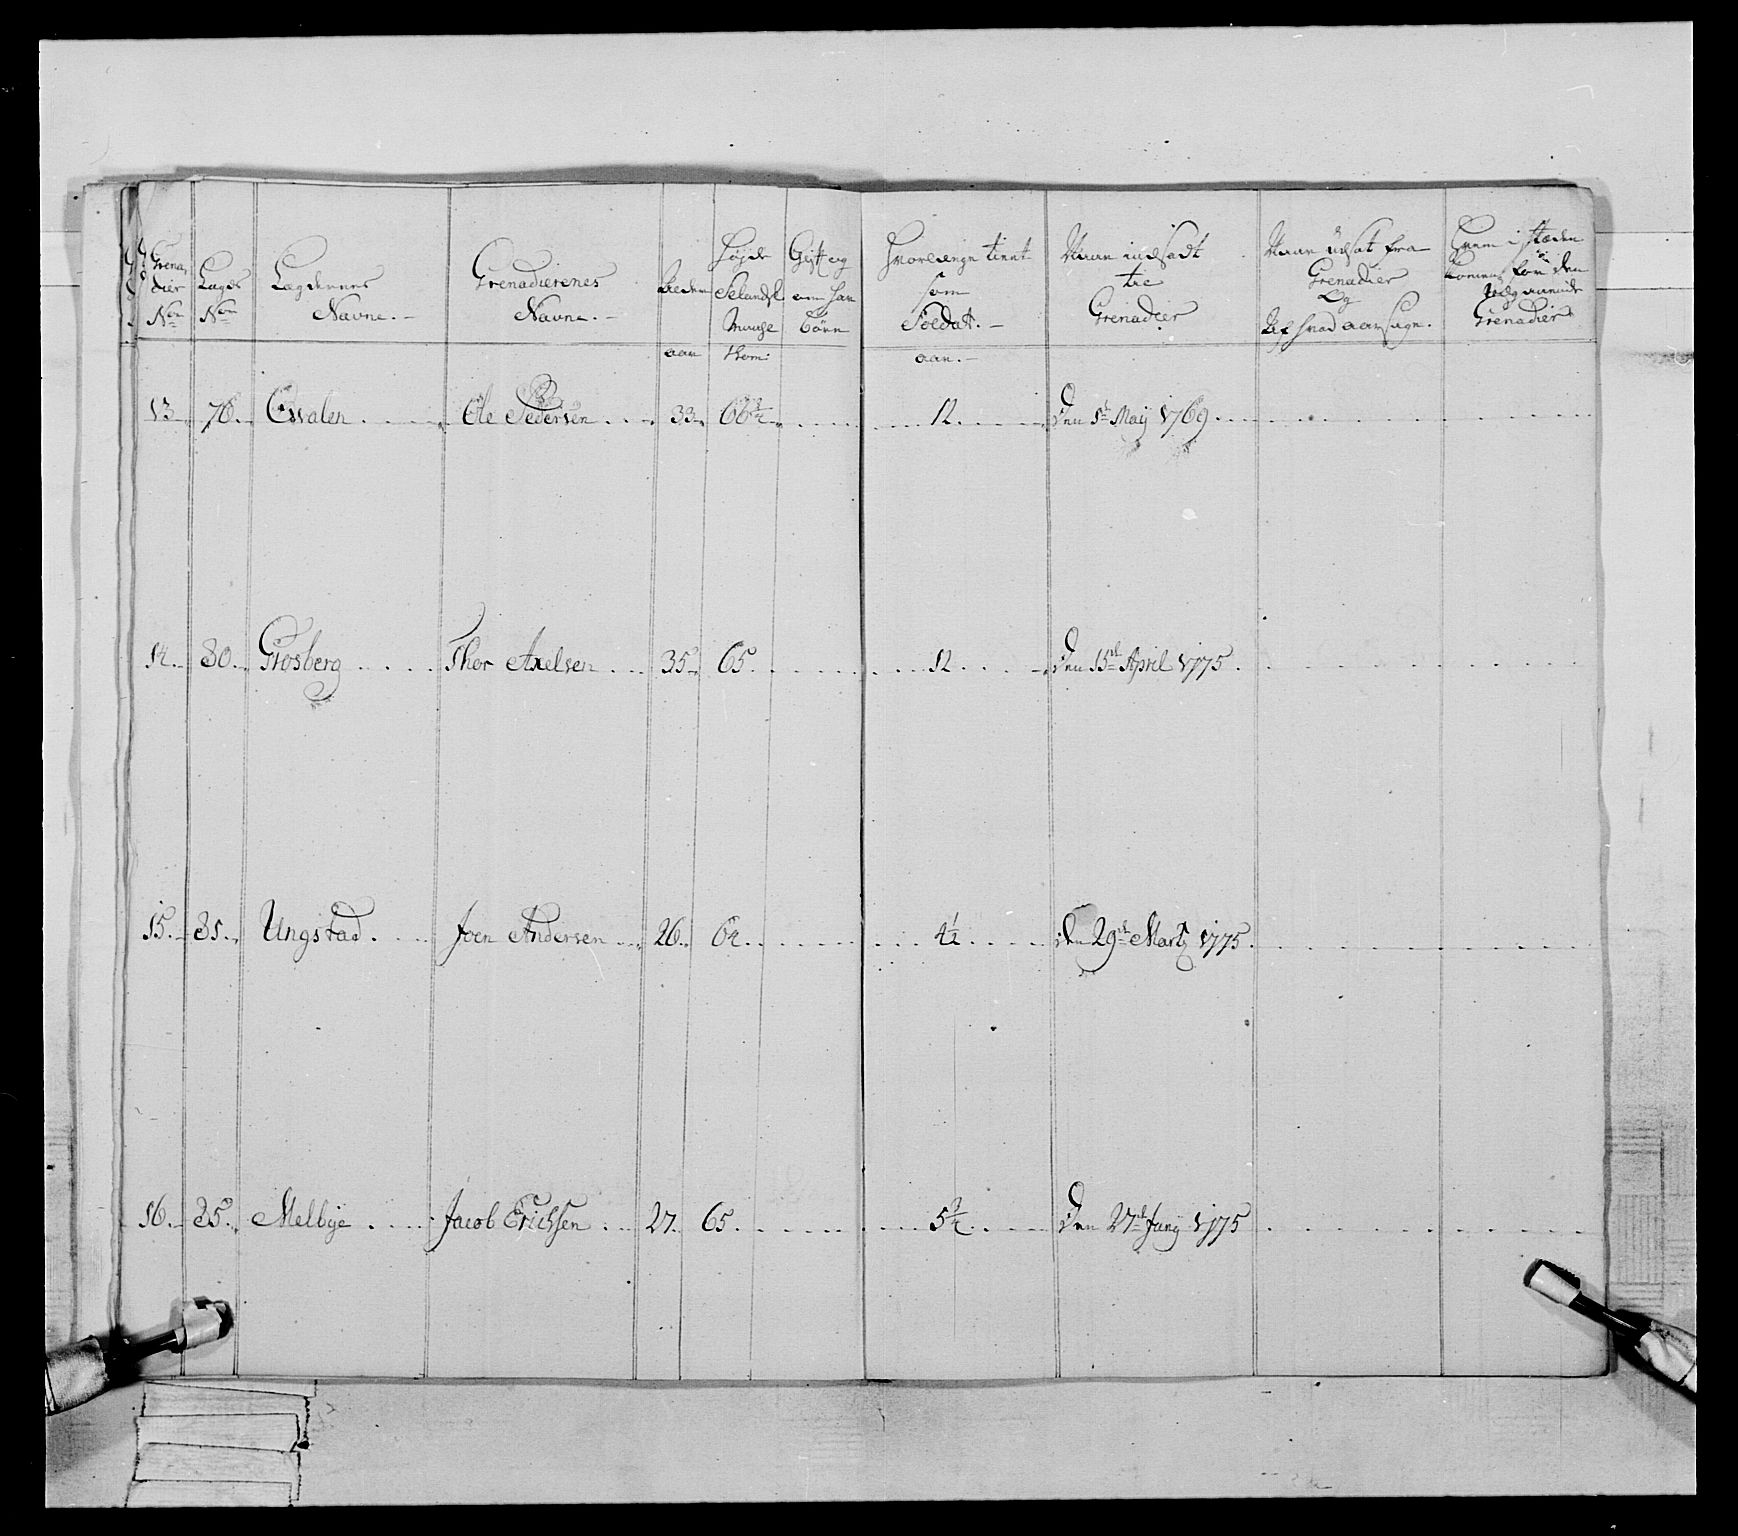 Grena
dier
No
Lægds
No
Lægdernes
Navne. –
Grenadierenes
Navne. –
Alder
aar
Højde
Selandsk
Maal
Tom:
Gift og
om har
Børn
Hvorlænge tient
som
Soldat. –
aar. –
Naar indsadt
til
Grenadier
Naar udsat fra
Grenadier
Og
Af hvad aarsage.
Hvem i stæden
kommen for den
Grenadier
13. 76. Esvalen Ole Pedersen 33. 66 3/4 12. Den 1te Maij 1769.
14. 80. Grosberg Thor Axelsen 35. 65. 12. Den 15de April 1775.
15. 81. Ungstad. Joen Andersen 26. 64. 4 1/2 den 29de Martz 1775.
16. 85. Melbye Jacob Erichsen 27. 65. 5 3/4 Den 27de Junij 1775